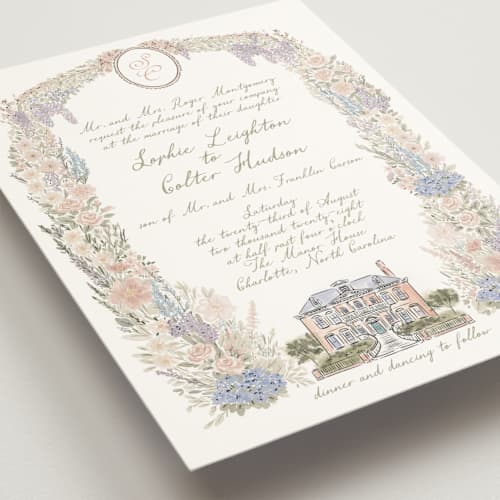 S
C
Mr. and Mrs. Roger Montgomery
request the pleasure of your company
at the marriage of their daughter
Sophie Leighton
to
Colter Hudson
son of Mr. and Mrs. Franklin Carson
Saturday
the twenty-third of August
two thousand twenty-eight
at half past four o'clock
The Manor House
Charlotte, North Carolina
dinner and dancing to follow